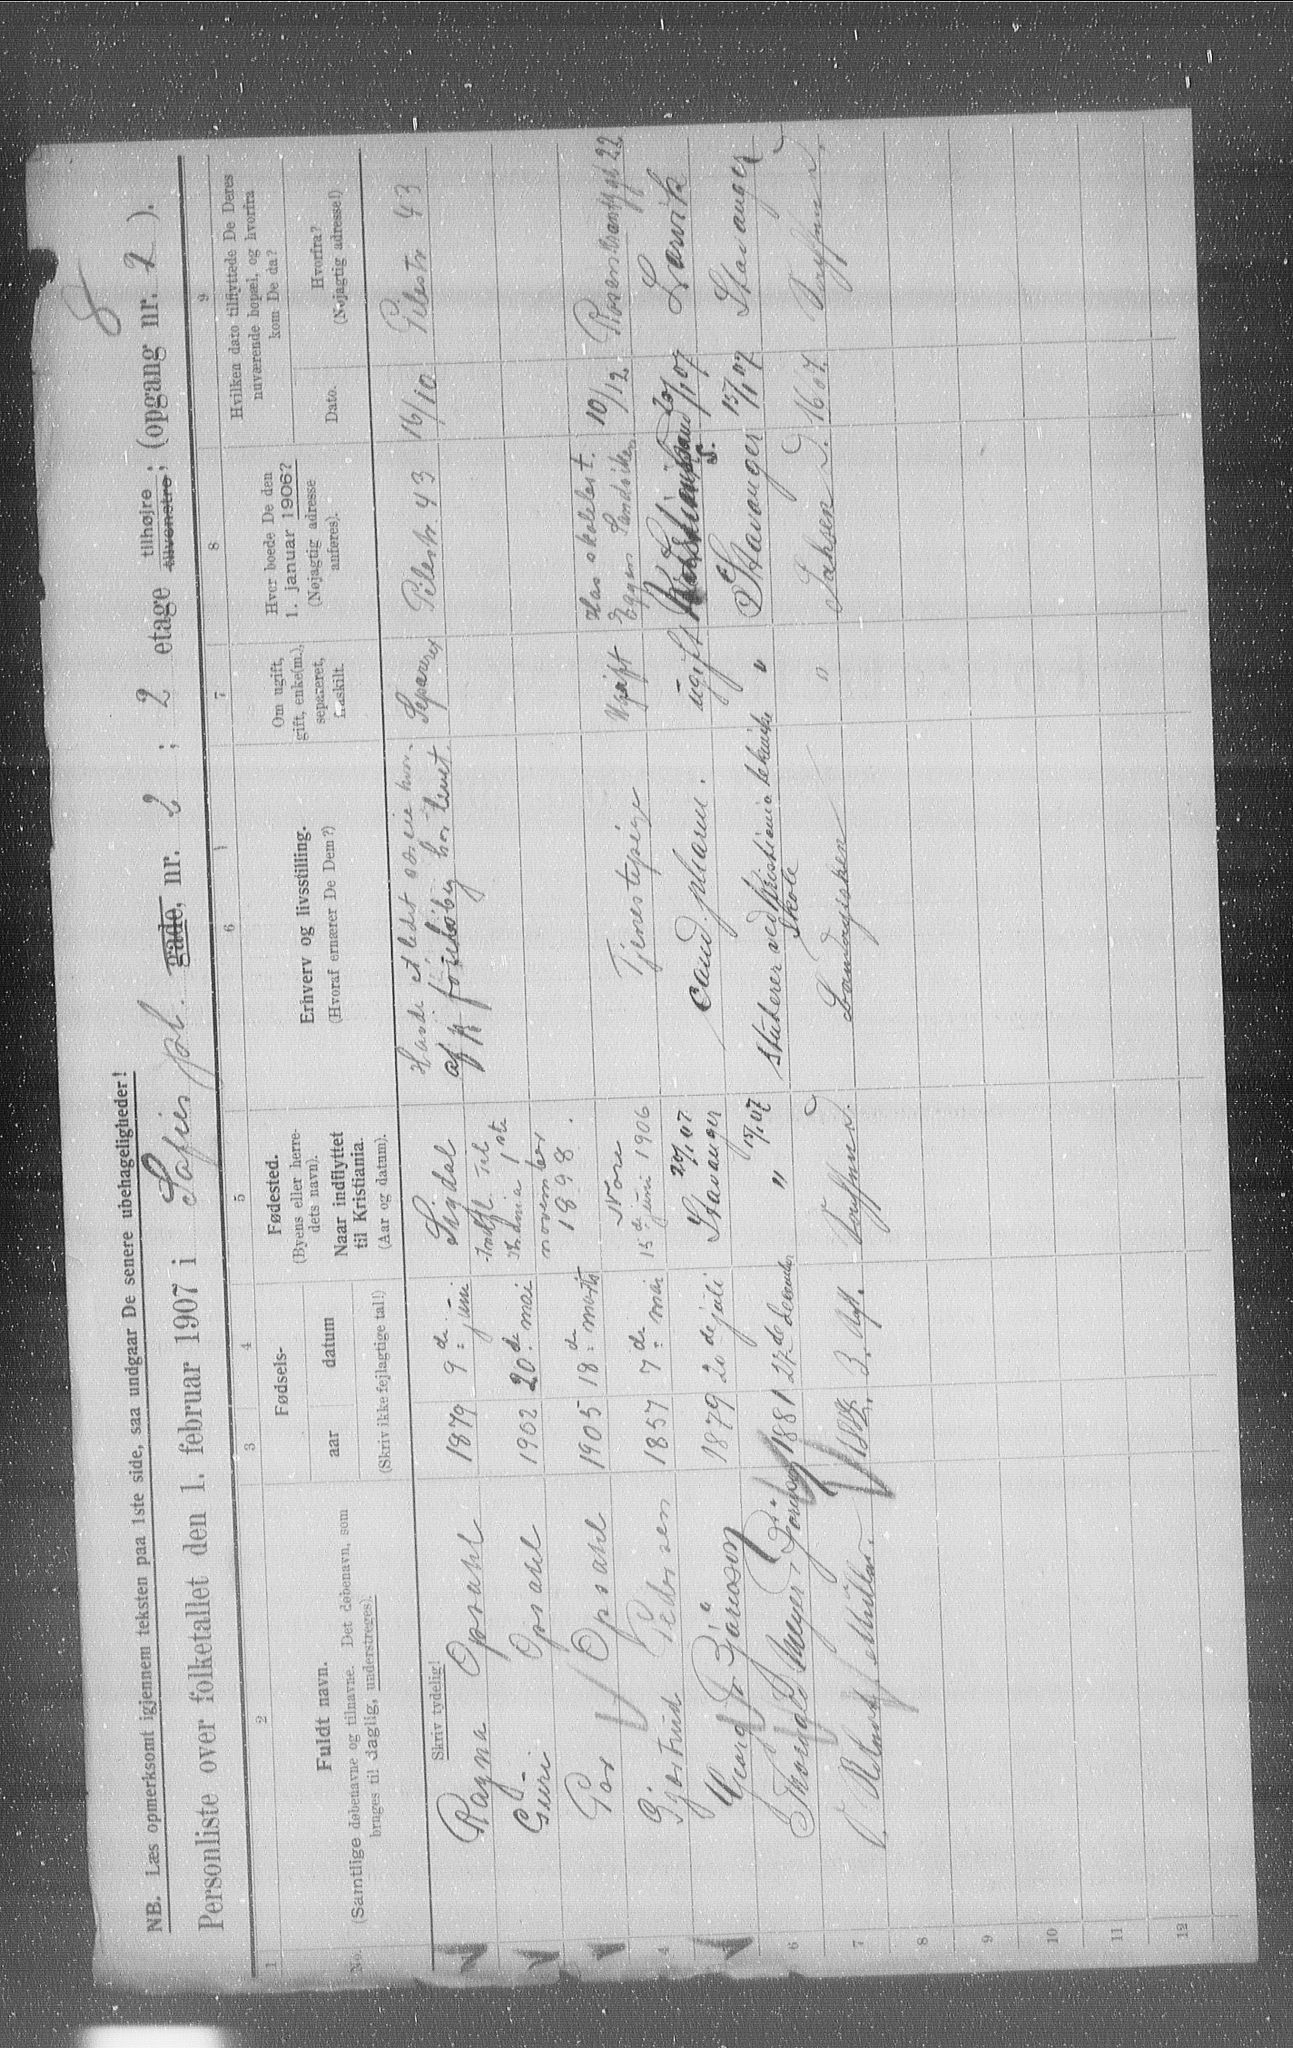 8
NB. Læs opmerksomt igjennem teksten paa 1ste side, saa undgaar De senere ubehageligheder!
Personliste over folketallet den 1. februar 1907 i Sofies pl. gade, nr. 2 ; 2 etage tilhøjre tilvenstre; (opgang nr. 2).
1 2 3 4 5 6 7 8 9
No.
Fuldt navn.
(Samtlige døbenavne og tilnavne. Det døbenavn, som
bruges til daglig, understreges).
Fødsels-
aar datum
(Skriv ikke fejlagtige tal!)
Fødested.
(Byens eller herre-
dets navn).
Naar indflyttet
til Kristiania.
(Aar og datum).
Erhverv og livsstilling.
(Hvoraf ernærer De Dem?)
Om ugift,
gift, enke(m.),
separeret,
fraskilt.
Hvor boede De den
1. januar 1906?
(Nøjagtig adresse
anføres).
Hvilken dato tilflyttede De Deres
nuværende bopæl, og hvorfra
kom De da?
Dato.
Hvorfra?
(Nøjagtig adresse!)
Skriv tydelig!
Ragna Opsahl 1879 9de juni Sigdal Separeret Pilestr. 43 16/10 Pilestr 43
Guri Opsahl 1902 20de mai
november 1898.
Opsahl 1905 18de marts
4 Gjertrud Pedersen 1857 7de mai Nore 15de juni 1906 Tjenestepige Ugift 10/12 22
Georg 1879 20de juli Stavanger 20/1 07 cand. pharm. ugift 20/1 07 Larvik
6 Thorvald Meyer 1881 27de december " 15/1 07 Studerer ved Kristiania tekniske Skole " Stavanger 15/1 07 Stavanger
7 3. " Sachsen
8
9
10
11
12